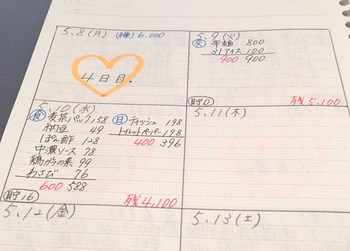 5.8(月) (種)6.000
4日目.
5.9(火)
交 年麺 800
31アイス 100
900 900
貯0 残5,100
5.10(水)
食 麦茶パック158
納豆 49
ぽん酢 128
中濃ソース 78
鶏がらの素 99
わさび 76
600 588
日 ティッシュ 198
トイレットペーパー 198
400 396
貯16 残4,100
5.11(木)
5.12(金)
5.13(土)